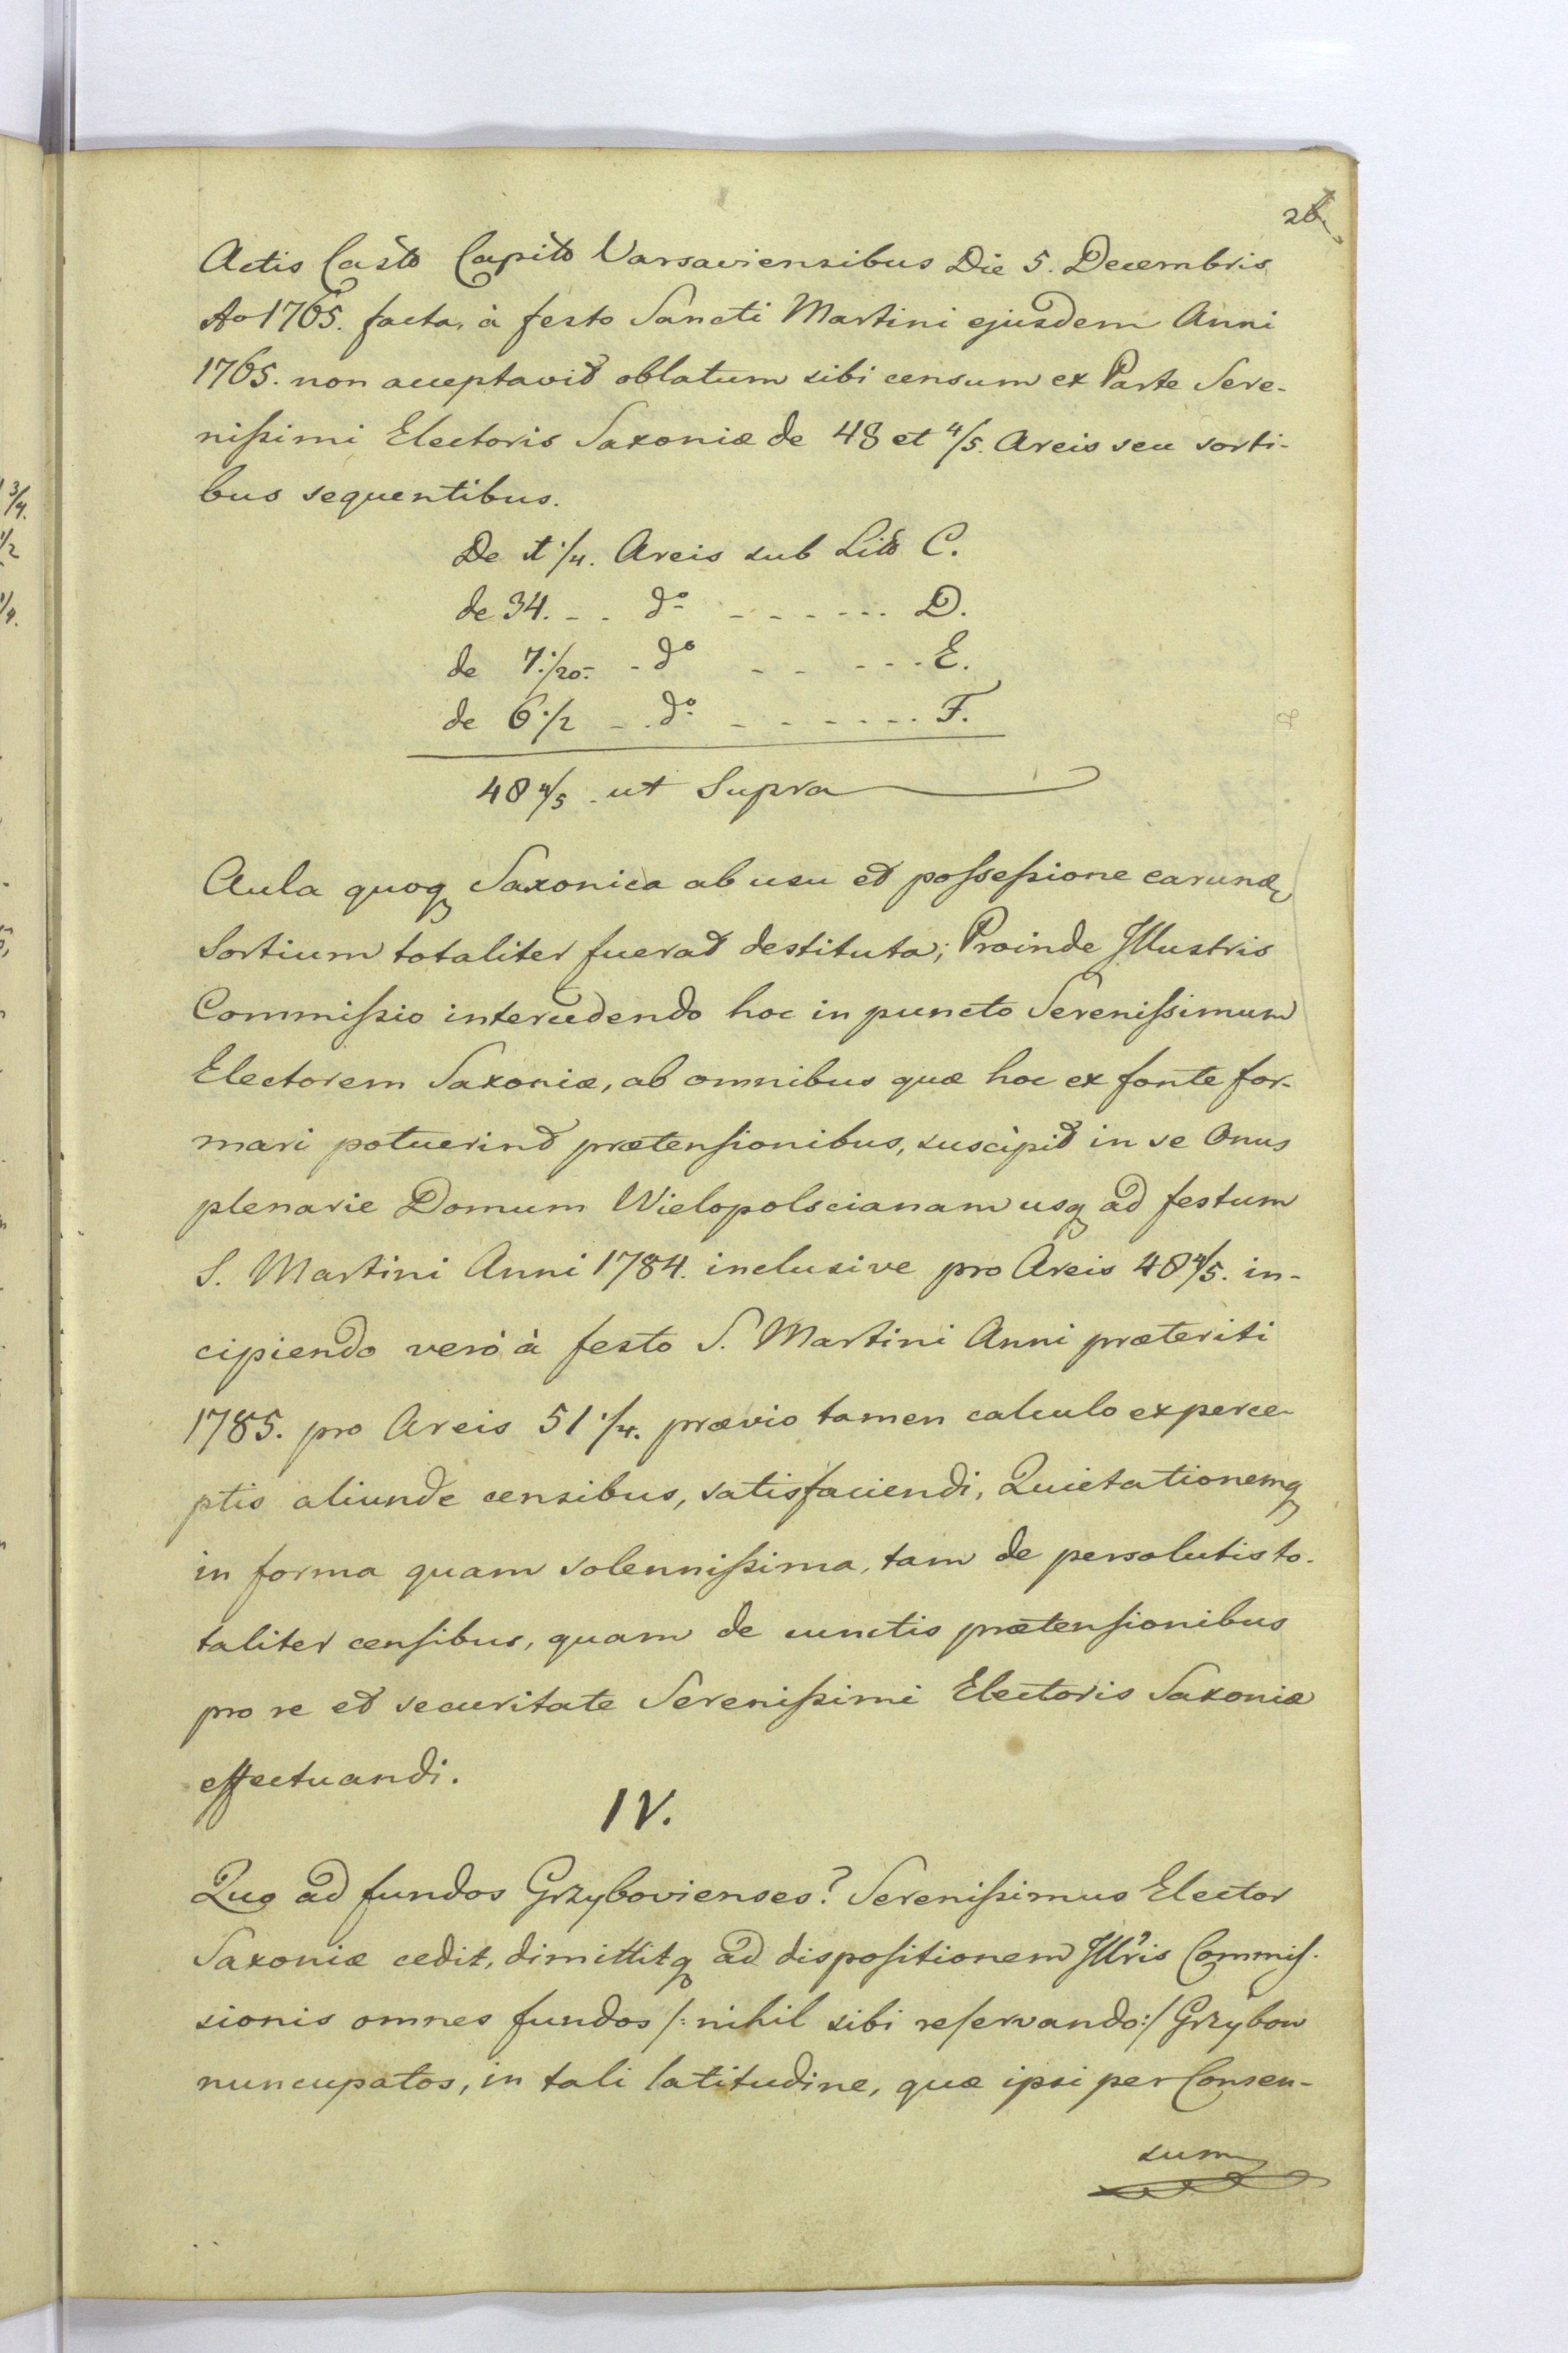 26
Actis Casto Capito Varsaviensibus Die 5. Decembris
Ao 1765. facta, à festo Sancti Martini ejusdem Anni
1765. non acceptavit oblatum sibi censum ex Parte Sere-
nissimi Electoris Saxoniæ de 48 et 4/5. Areis seu sorti-
bus sequentibus.
De 1 1/4. Areis sub Litt C.
de 34. - - do - - - - - - - D.
de 7 1/20. - - do - - - - - E.
de 6 1/2 - - do - - - - - - - F.
48 4/5. ut Supra
Aula quoq Saxonica ab usu et possessione earund
Sortium totaliter fuerat destituta; Proinde Illustris
Commissio intercedendo hoc in puncto Serenissimum
Electorem Saxoniæ, ab omnibus quæ hoc ex fonte for-
mari potuerint prætensionibus, suscipit in se Onus
plenarie Domum Wielopolscianam usq ad festum
S. Martini Anni 1784. inclusive pro Areis 48 4/5. in-
cipiendo verò à festo S. Martini Anni præteriti
1785. pro Areis 51 1/4. prævio tamen calculo ex perce-
ptis aliunde censibus, satisfaciendi, Quietationemq
in forma quam solennissima, tam de persolutis to-
taliter censibus, quam de cunctis prætensionibus
pro re et securitate Serenissimi Electoris Saxoniæ
effectuandi.
IV.
Quo ad fundos Grzybovienses? Serenissimus Elector
Saxoniæ cedit, dimittitq ad dispositionem Illris Commis-
sionis omnes fundos /: nihil sibi reservando:/ Grzybow
nuncupatos, in tali latitudine, quæ ipsi per Consen-
sum